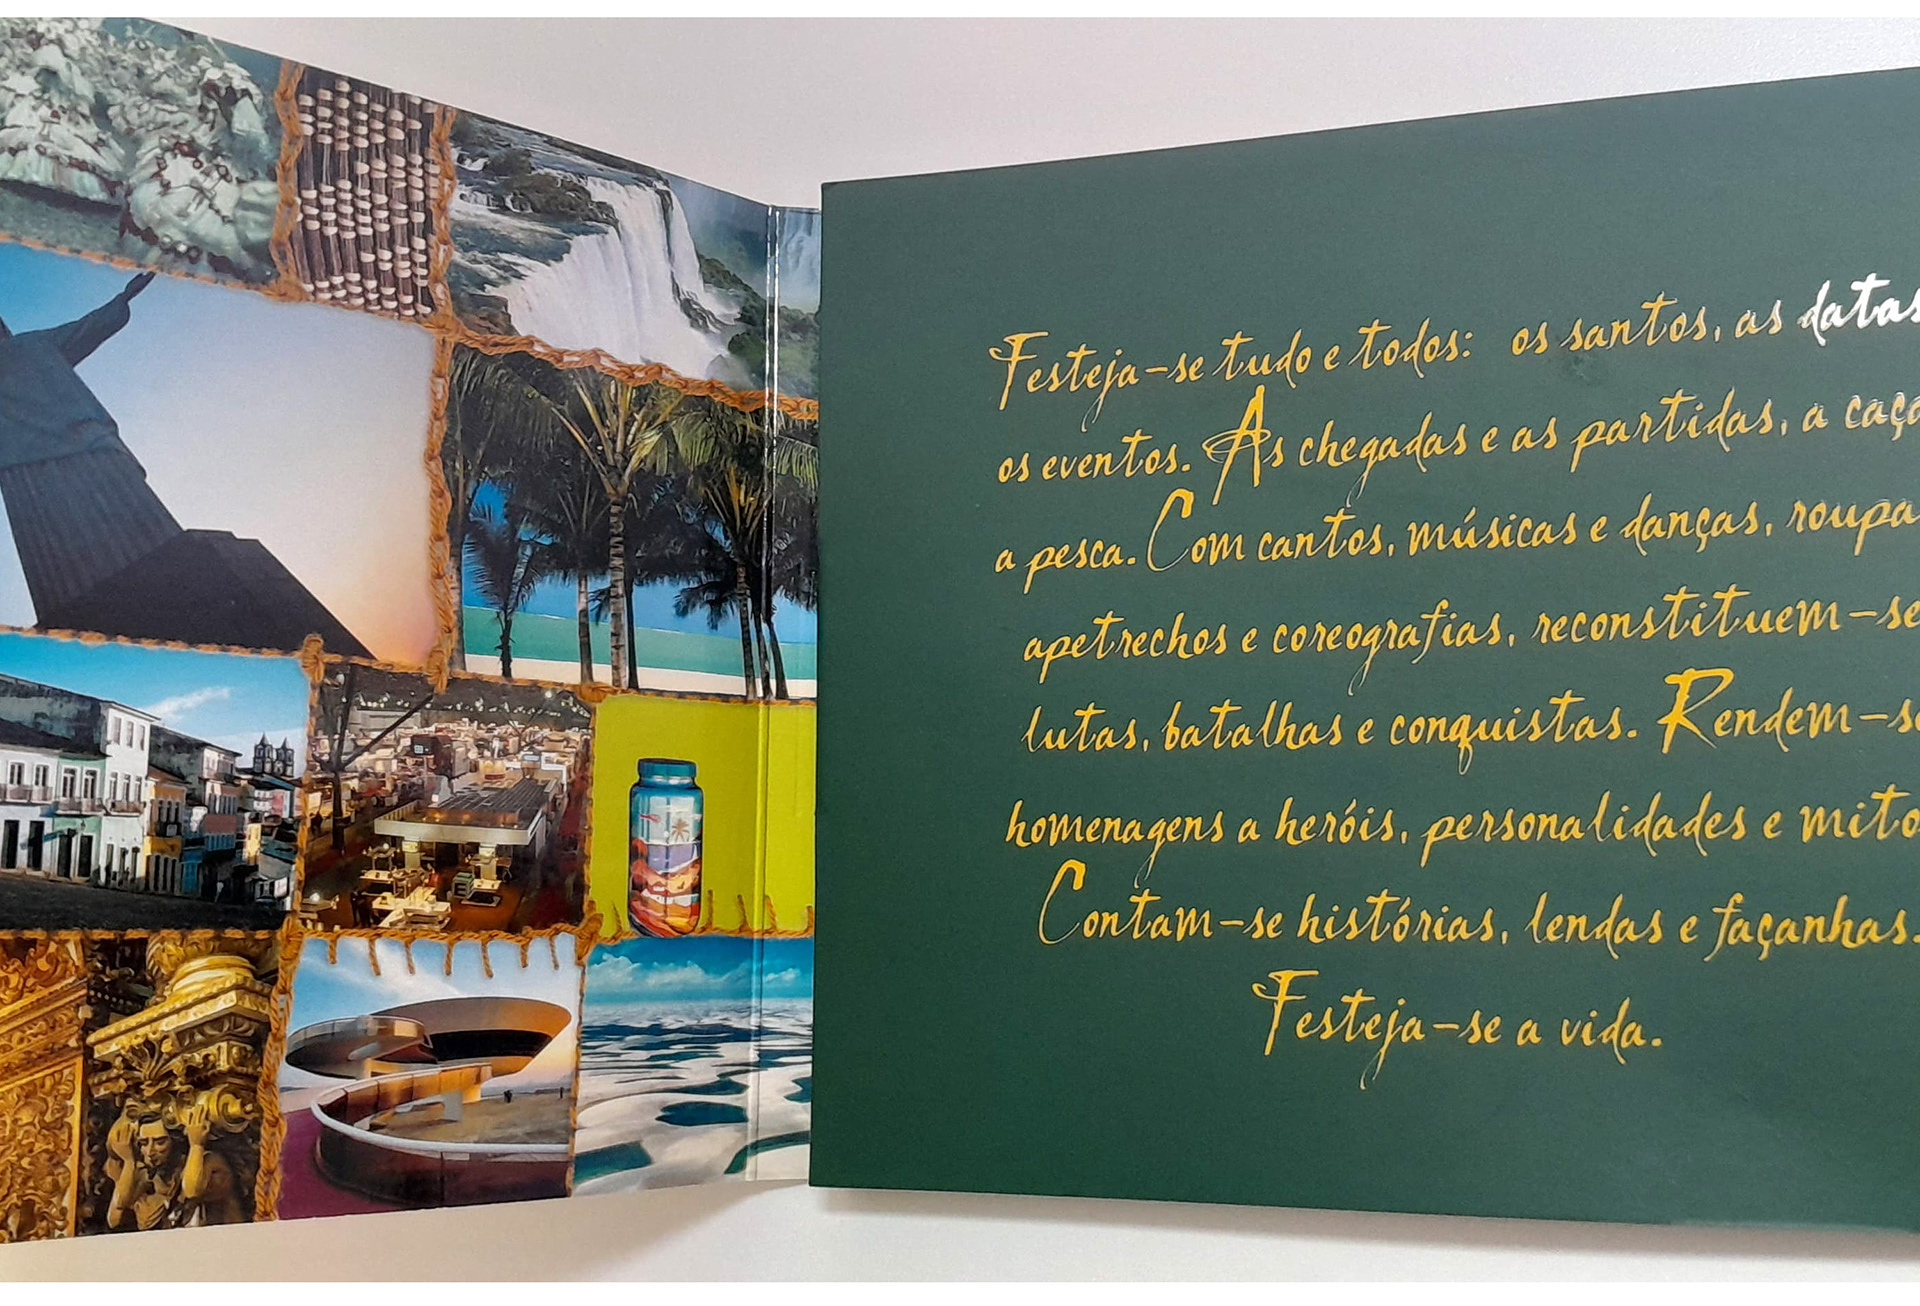 Festeja-se tudo e todos: os santos, as datas
os eventos. As chegadas e as partidas, a caça
a pesca. Com cantos, músicas e danças, roupa
apetrechos e coreografias, reconstituem-se
lutas, batalhas e conquistas. Rendem-se
homenagens a heróis, personalidades e mito
Contam-se histórias, lendas e façanhas.
Festeja-se a vida.